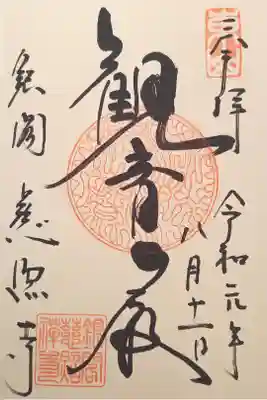 奉拝
令和元年
八月十一日
観音殿
銀閣 慈照寺